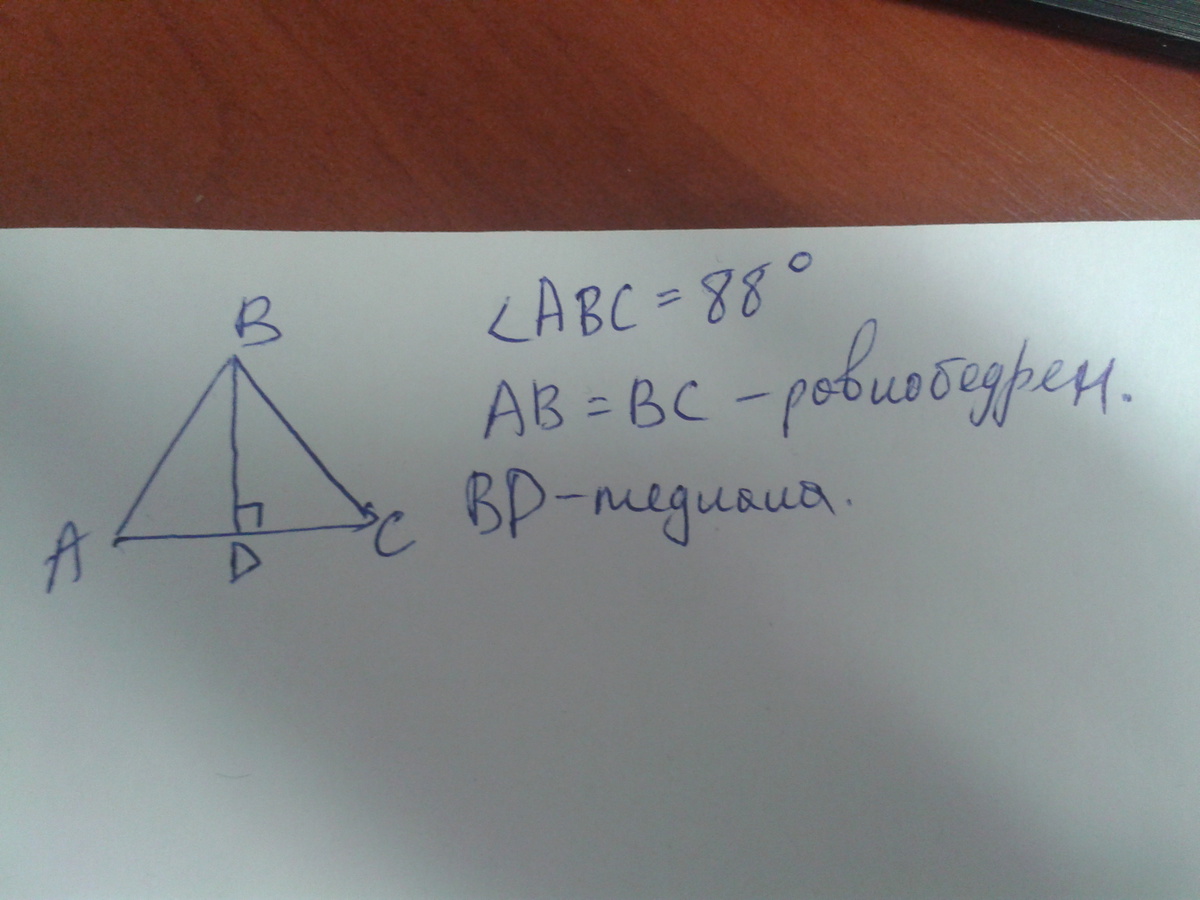 B
A
D
C
<ABC = 88°
AB = BC - ровнобедрен.
BD - медиана.